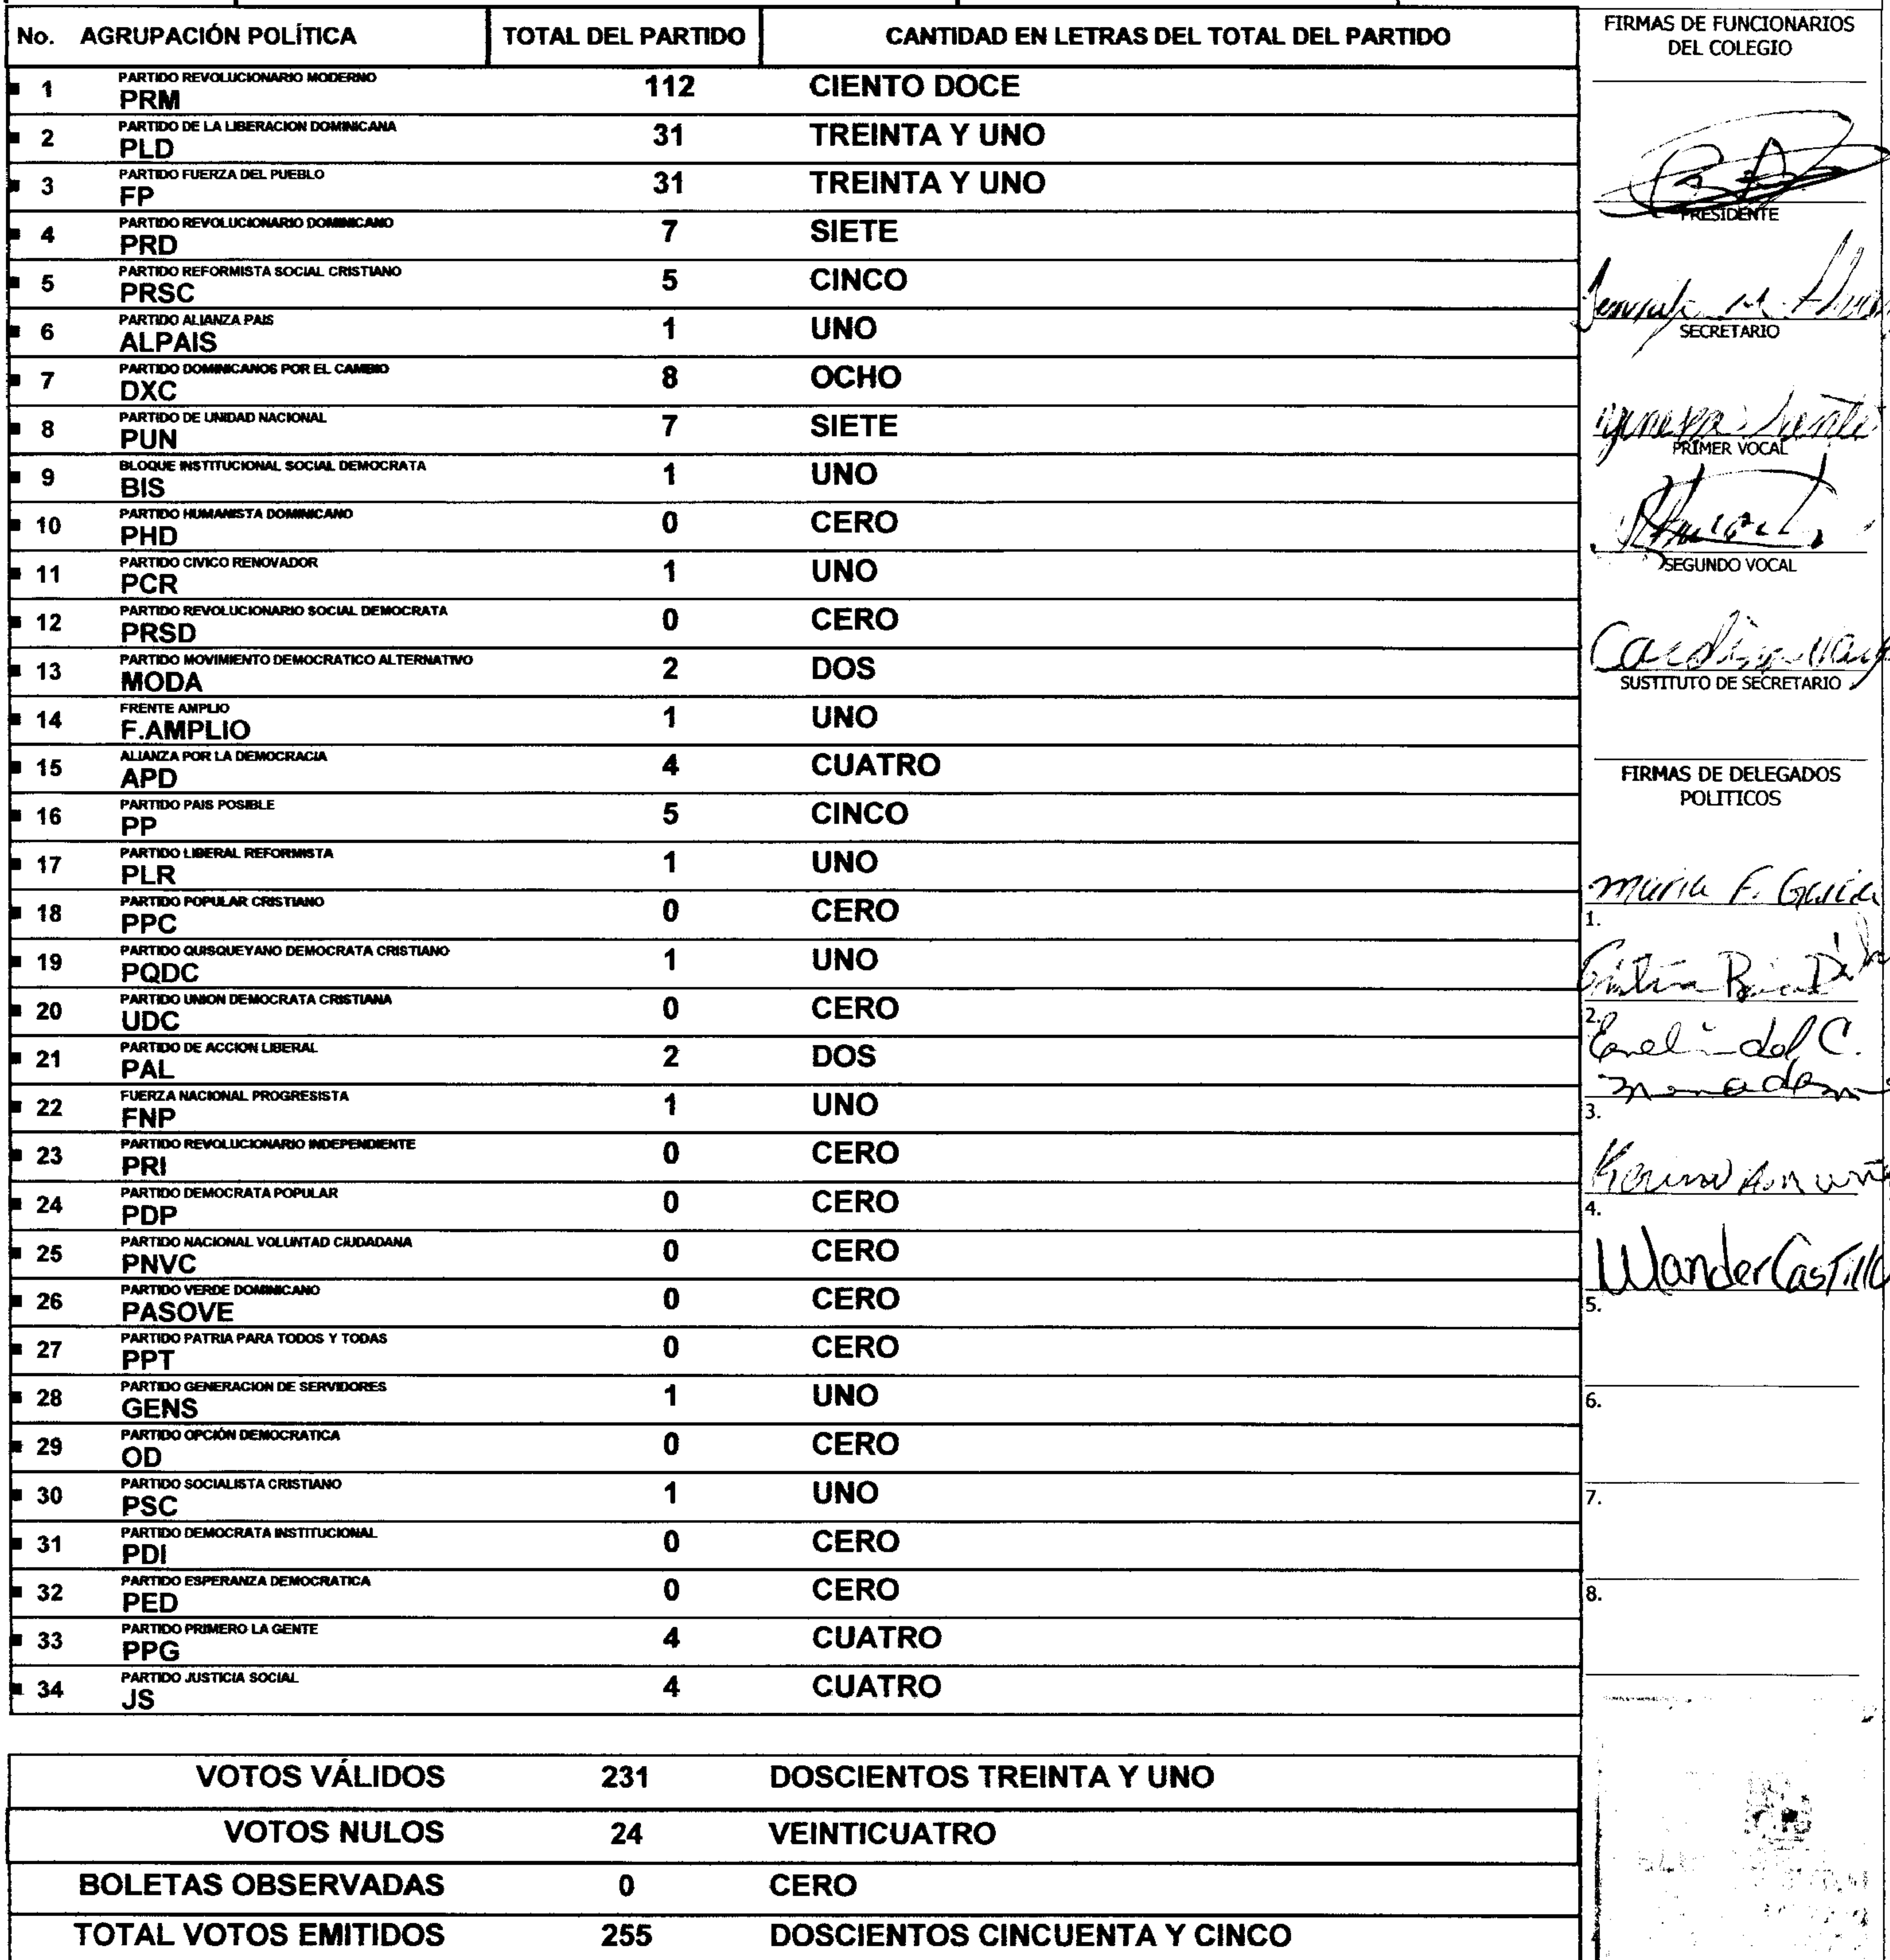 No. AGRUPACIÓN POLÍTICA TOTAL DEL PARTIDO CANTIDAD EN LETRAS DEL TOTAL DEL PARTIDO
1 PARTIDO REVOLUCIONARIO MODERNO
PRM 112 CIENTO DOCE
2 PARTIDO DE LA LIBERACION DOMINICANA
PLD 31 TREINTA Y UNO
3 PARTIDO FUERZA DEL PUEBLO
FP 31 TREINTA Y UNO
4 PARTIDO REVOLUCIONARIO DOMINICANO
PRD 7 SIETE
5 PARTIDO REFORMISTA SOCIAL CRISTIANO
PRSC 5 CINCO
6 PARTIDO ALIANZA PAIS
ALPAIS 1 UNO
7 PARTIDO DOMINICANOS POR EL CAMBIO
DXC 8 OCHO
8 PARTIDO DE UNIDAD NACIONAL
PUN 7 SIETE
9 BLOQUE INSTITUCIONAL SOCIAL DEMOCRATA
BIS 1 UNO
10 PARTIDO HUMANISTA DOMINICANO
PHD 0 CERO
11 PARTIDO CIVICO RENOVADOR
PCR 1 UNO
12 PARTIDO REVOLUCIONARIO SOCIAL DEMOCRATA
PRSD 0 CERO
13 PARTIDO MOVIMIENTO DEMOCRATICO ALTERNATIVO
MODA 2 DOS
14 FRENTE AMPLIO
F.AMPLIO 1 UNO
15 ALIANZA POR LA DEMOCRACIA
APD 4 CUATRO
16 PARTIDO PAIS POSIBLE
PP 5 CINCO
17 PARTIDO LIBERAL REFORMISTA
PLR 1 UNO
18 PARTIDO POPULAR CRISTIANO
PPC 0 CERO
19 PARTIDO QUISQUEYANO DEMOCRATA CRISTIANO
PQDC 1 UNO
20 PARTIDO UNION DEMOCRATA CRISTIANA
UDC 0 CERO
21 PARTIDO DE ACCION LIBERAL
PAL 2 DOS
22 FUERZA NACIONAL PROGRESISTA
FNP 1 UNO
23 PARTIDO REVOLUCIONARIO INDEPENDIENTE
PRI 0 CERO
24 PARTIDO DEMOCRATA POPULAR
PDP 0 CERO
25 PARTIDO NACIONAL VOLUNTAD CIUDADANA
PNVC 0 CERO
26 PARTIDO VERDE DOMINICANO
PASOVE 0 CERO
27 PARTIDO PATRIA PARA TODOS Y TODAS
PPT 0 CERO
28 PARTIDO GENERACION DE SERVIDORES
GENS 1 UNO
29 PARTIDO OPCIÓN DEMOCRATICA
OD 0 CERO
30 PARTIDO SOCIALISTA CRISTIANO
PSC 1 UNO
31 PARTIDO DEMOCRATA INSTITUCIONAL
PDI 0 CERO
32 PARTIDO ESPERANZA DEMOCRATICA
PED 0 CERO
33 PARTIDO PRIMERO LA GENTE
PPG 4 CUATRO
34 PARTIDO JUSTICIA SOCIAL
JS 4 CUATRO
VOTOS VÁLIDOS 231 DOSCIENTOS TREINTA Y UNO
VOTOS NULOS 24 VEINTICUATRO
BOLETAS OBSERVADAS 0 CERO
TOTAL VOTOS EMITIDOS 255 DOSCIENTOS CINCUENTA Y CINCO
FIRMAS DE FUNCIONARIOS
DEL COLEGIO
PRESIDENTE
SECRETARIO
PRIMER VOCAL
SEGUNDO VOCAL
SUSTITUTO DE SECRETARIO
FIRMAS DE DELEGADOS
POLITICOS
Maria F. Garcia
1.
2.
del C.
3.
4.
Wander Castillo
5.
6.
7.
8.